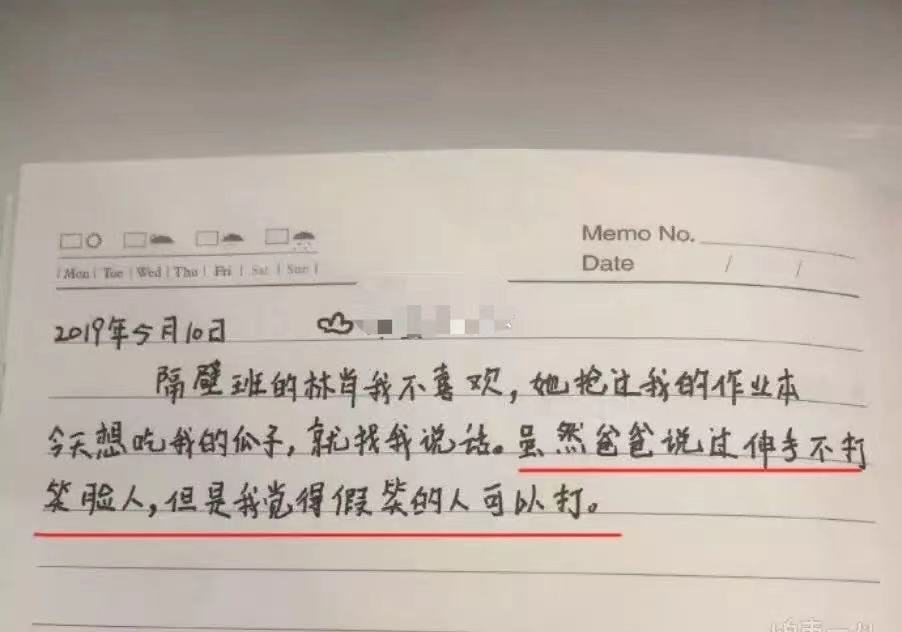 Memo No.
Mon Tue Wed Thu Fri Sat Sun
Date / /
2019年5月10日
隔壁班的林肖我不喜欢，她抢过我的作业本
今天想吃我的瓜子，就找我说话。虽然爸爸说过伸手不打
笑脸人，但是我觉得假笑的人可以打。